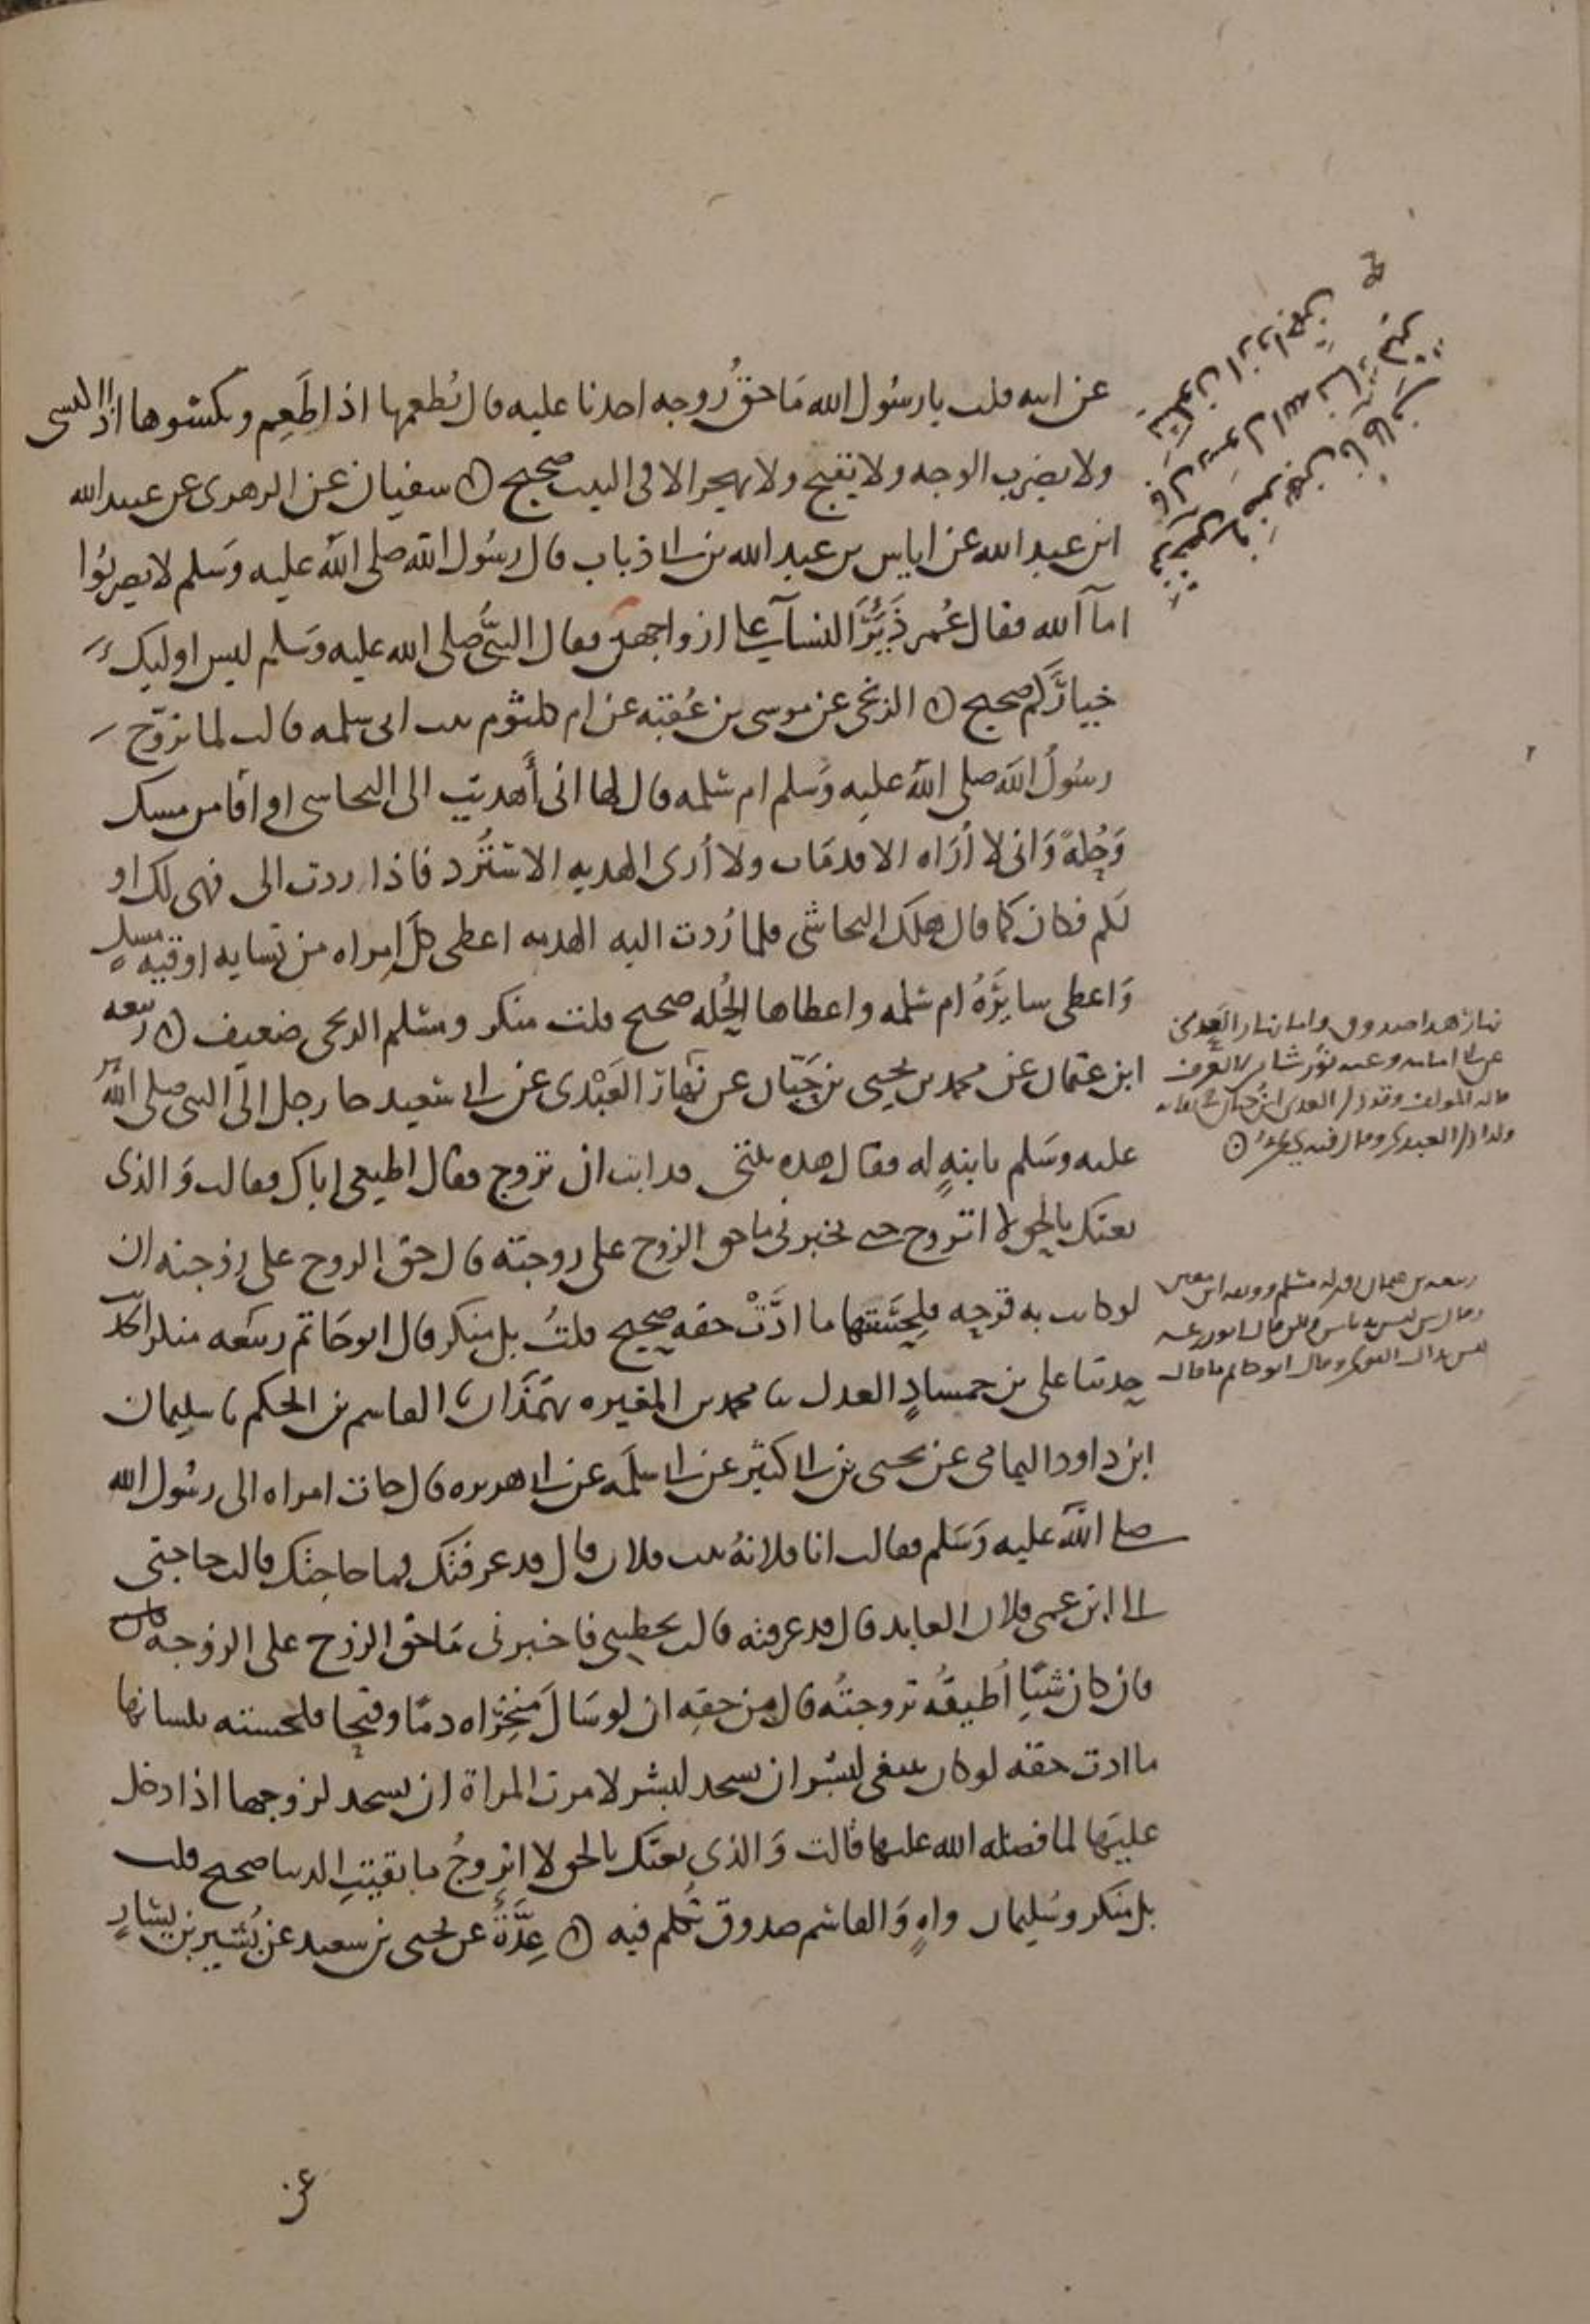 عن ابيه قلت يا رسول الله ما حق زوجه احدنا عليه قال تطعمها اذا طعم ويكسوها اذا اكتسى
ولا يضرب الوجه ولا يقبح ولا يهجر الا فى البيت صحيح سفيان عن الزهرى عن عبيد الله
ابن عبد الله عن اياس بن عبد الله بن ابى ذباب قال رسول الله صلى الله عليه وسلم لا تضربوا
امآ الله فقال عمر ذئر النسآ على ازواجهن فقال النبى صلى الله عليه وسلم ليس اوليك
خياركم صحيح الزنجى عن موسى بن عقبه عن ام كلثوم بنت ابى سلمه قالت لما تزوج
رسول الله صلى الله عليه وسلم ام سلمه قال لها انى أهديت الى النجاشى اواقا من مسك
وحلة وانى لا أراه الا قد مات ولا أرى الهديه الا سترد فاذا ردت الى فهى لك او
لكم فكان كما قال هلك النجاشى فلما ردت اليه الهديه اعطى كل امراه من نسايه اوقيه مسك
واعطى سايره ام سلمه واعطاها الحله صحيح قلت منكر ومسلم الزنجى ضعيف ربيعه
ابن عثمان عن محمد بن يحيى بن حبان عن نهار العبدى عن ابى سعيد جا رجل الى النبى صلى الله
عليه وسلم بابنة له فقال هذه بنتى قد ابت ان تزوج فقال اطيعى اباك فقالت والذى
بعثك بالحق لا اتزوج حتى تخبرنى ما حق الزوج على زوجته قال حق الزوج على زوجته ان
لو كانت به قرحه فلحستها ما ادت حقه صحيح قلت بل منكر قال ابو حاتم ربيعه منكر الحديث
حدثنا على بن حمشاد العدل ثنا محمد بن المغيره بهمذان ثنا القاسم بن الحكم ثنا سليمان
ابن داود اليمامى عن يحيى بن ابى كثير عن ابى سلمه عن ابى هريره قال جات امراه الى رسول الله
صلى الله عليه وسلم فقالت انا فلانة بنت فلان قال قد عرفتك فما حاجتك قالت حاجتى
الى ابن عمى فلان العابد قال قد عرفته قالت يخطبنى فاخبرنى ما حق الزوج على الزوجه
فان كان شيئا أطيقه تزوجته قال من حقه ان لو سال منخراه دما وقيحا فلحسته بلسانها
ما ادت حقه لو كان ينبغى لبشر ان يسجد لبشر لامرت المراة ان تسجد لزوجها اذا دخل
عليها لما فضله الله عليها قالت والذى بعثك بالحق لا اتزوج ما بقيت الدنيا صحيح قلت
بل منكر وسليمان واه والقاسم صدوق تكلم فيه عدة عن يحيى بن سعيد عن بشير بن يسار
عن